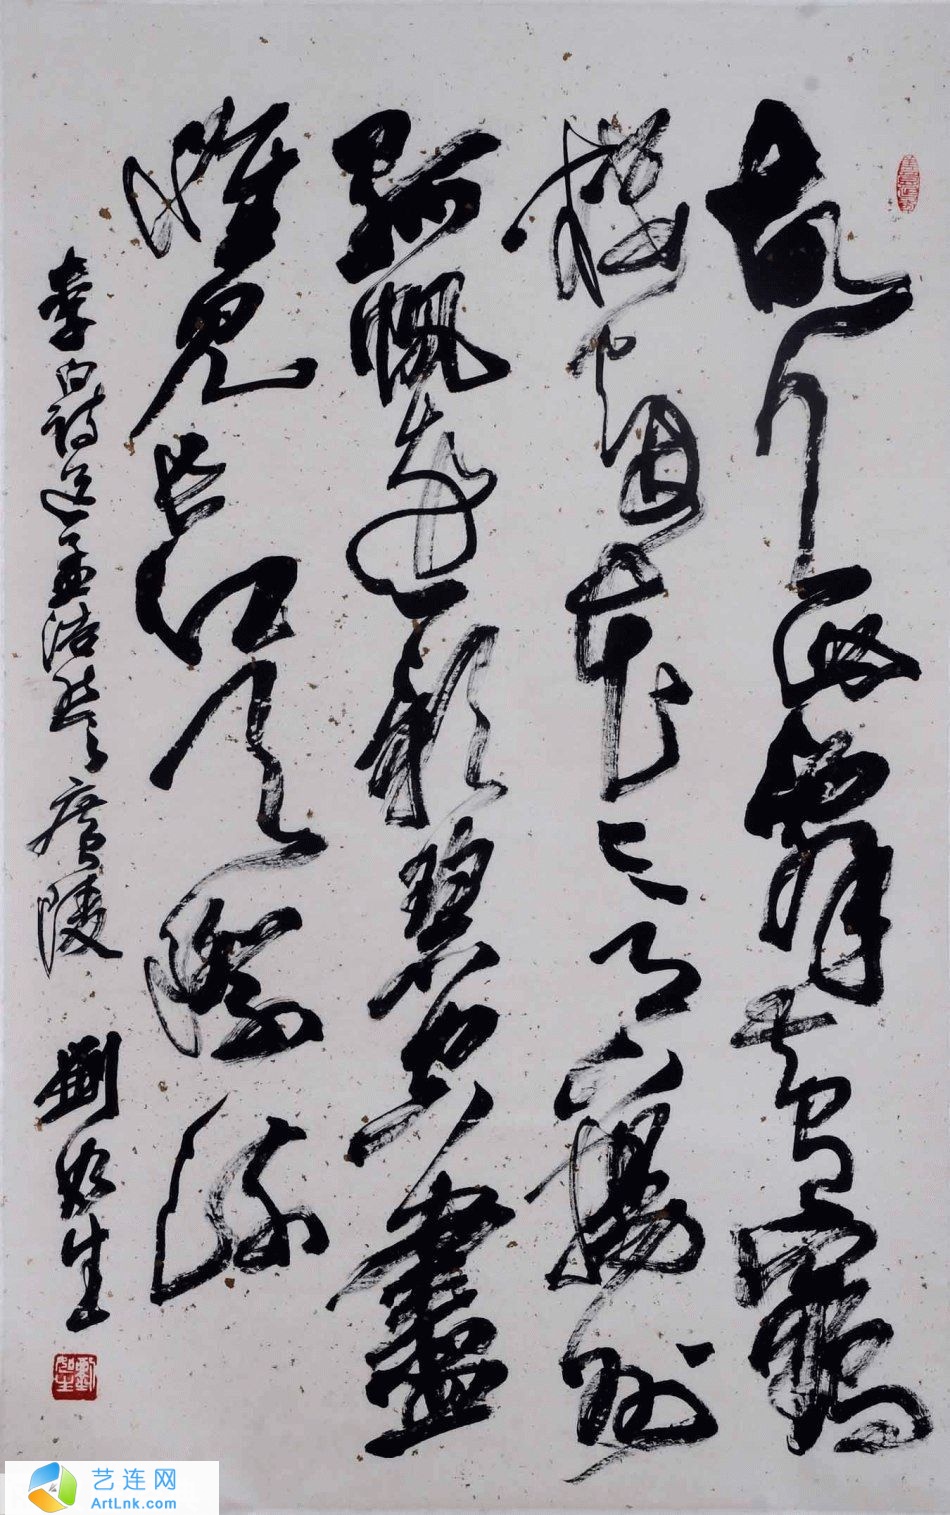 故人西辞黄鹤
楼烟花三月下扬州
孤帆远影碧空尽
唯见长江天际流
李白诗送孟浩然之广陵 刘知生
刘知生
艺连网
ArtLnk.com